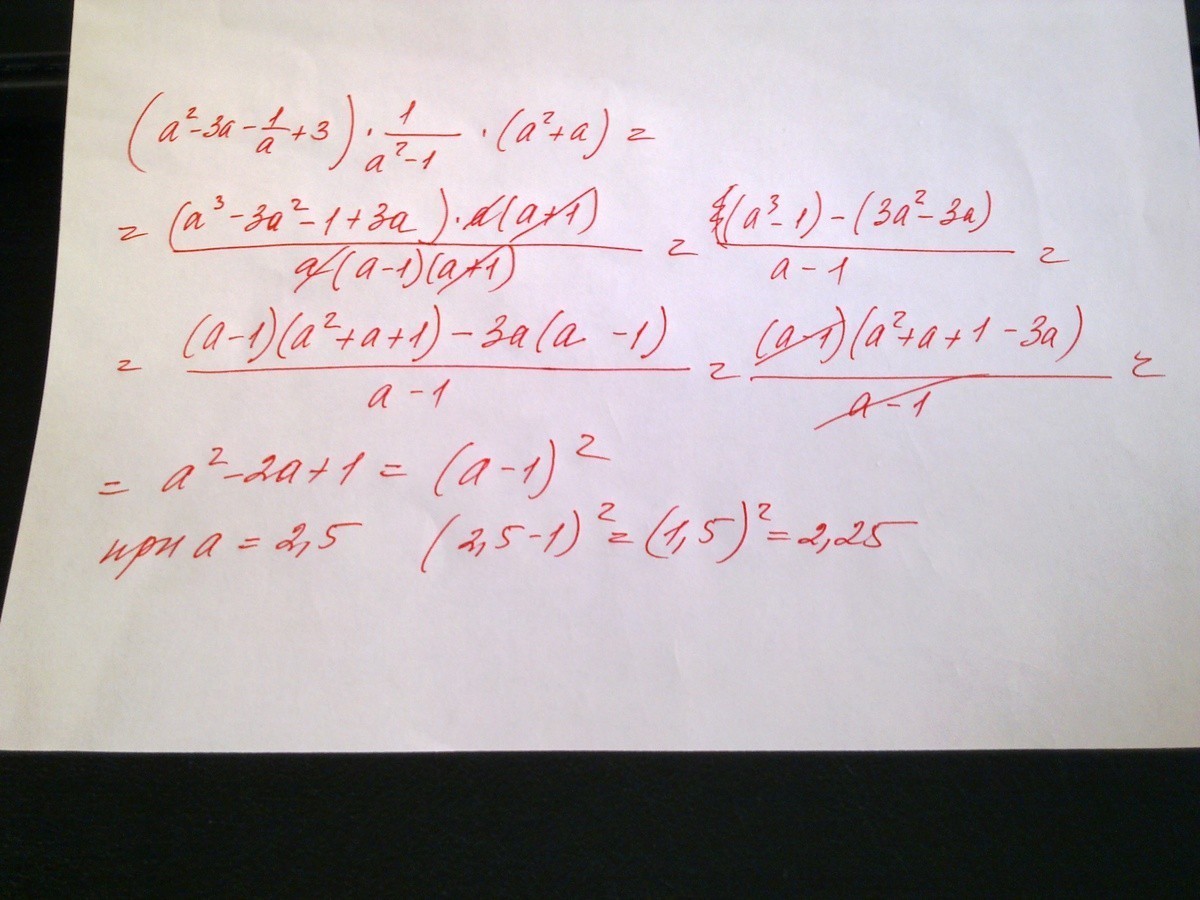 (a²-3a-1/a+3)·1/(a²-1)·(a²+a)=
=((a³-3a²-1+3a)·a(a+1))/(a(a-1)(a+1))=((a³-1)-(3a²-3a))/(a-1)=
=((a-1)(a²+a+1)-3a(a-1))/(a-1)=((a-1)(a²+a+1-3a))/(a-1)=
=a²-2a+1=(a-1)²
при a=2,5 (2,5-1)²=(1,5)²=2,25